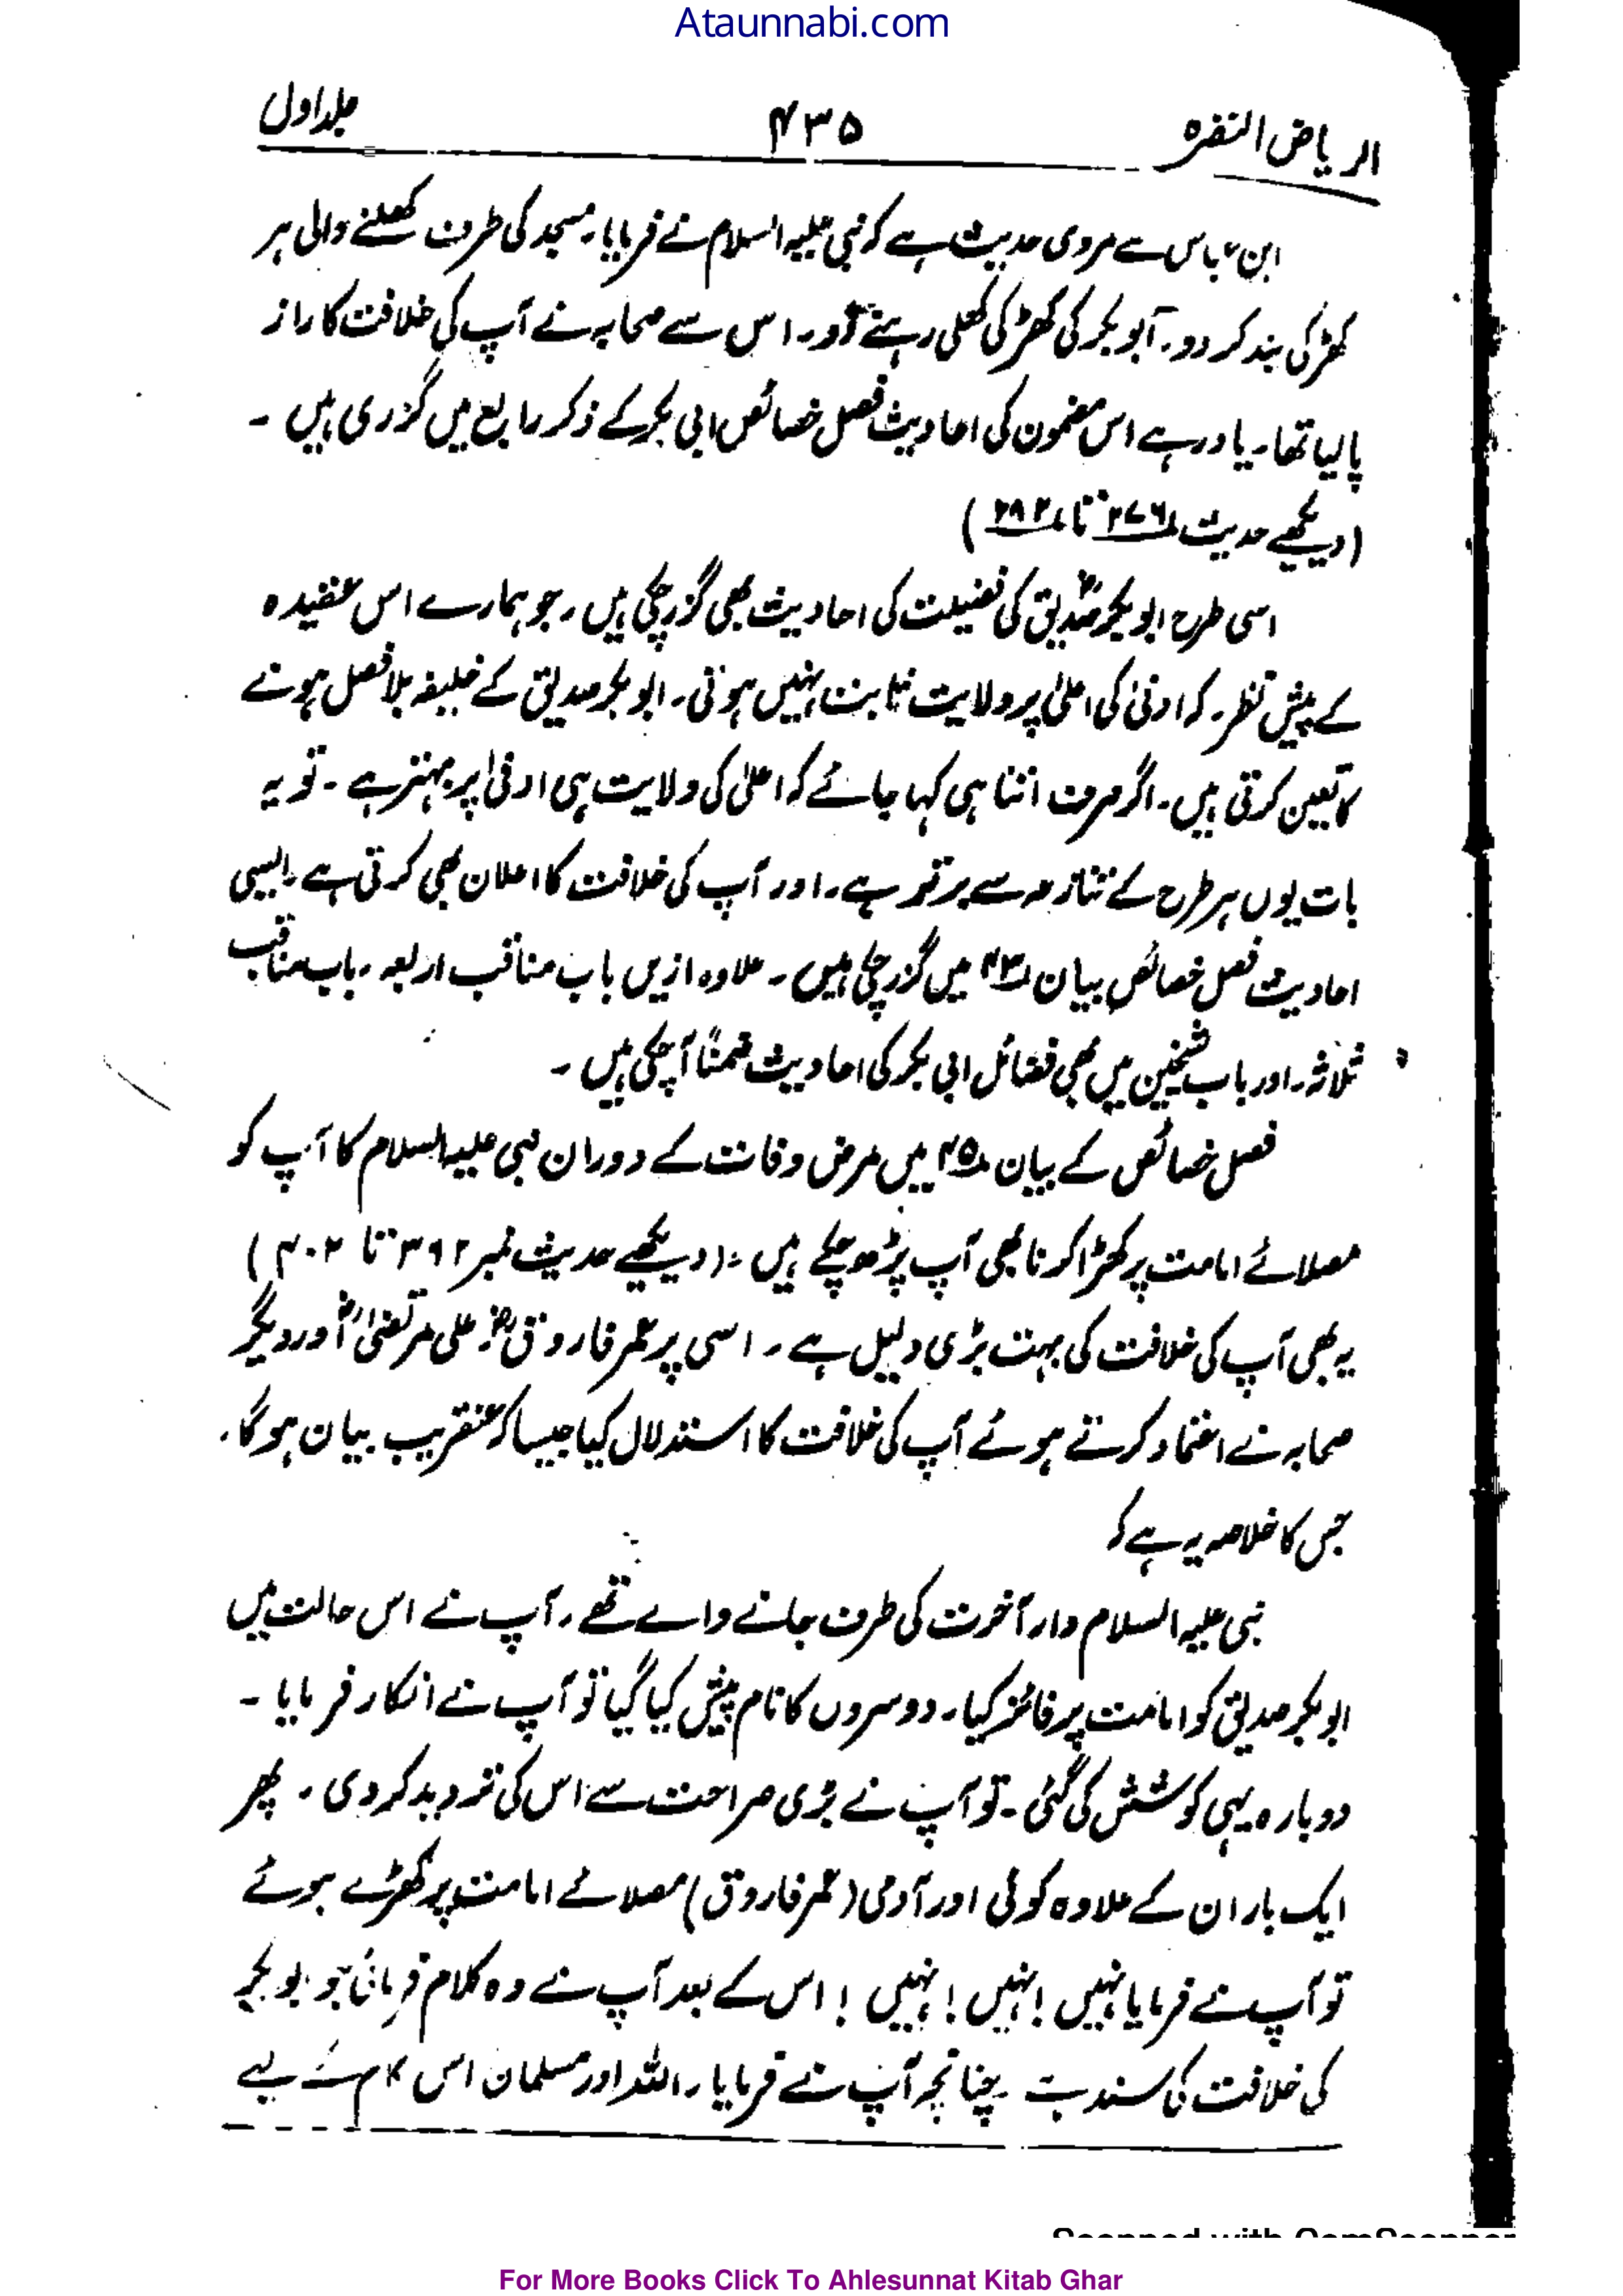 Ataunnabi.com
الریاض النضرہ ۴۳۵ جلد اول
ابن عباس سے مروی حدیث ہے کہ نبی علیہ السلام نے فرمایا۔ مسجد کی طرف کھلنے والی ہر
کھڑکی بند کر دو۔ ابو بکر کی کھڑکی کھلی رہنے دو۔ اس سے صحابہ نے آپ کی خلافت کا راز
پا لیا تھا۔ یاد رہے اس مضمون کی احادیث فصل خصائص ابی بکر کے ذکر رابع میں گزری ہیں ۔
(دیکھیے حدیث ۲۷۶ تا ۲۸۲)
اسی طرح ابو بکر صدیقؓ کی فضیلت کی احادیث بھی گزر چکی ہیں ۔ جو ہمارے اس عقیدہ
کے پیش نظر۔ کہ ادنیٰ کی اعلیٰ پر ولایت ثابت نہیں ہوتی۔ ابو بکر صدیق کے خلیفہ بلا فصل ہونے
کا تعین کرتی ہیں۔ اگر صرف اتنا ہی کہا جائے کہ اعلیٰ کی ولایت ہی ادنیٰ پر بہتر ہے ۔ تو یہ
بات یوں ہر طرح کے تنازعہ سے برتر ہے۔ اور آپ کی خلافت کا اعلان بھی کرتی ہے۔ ایسی
احادیث فصل خصائص بیان ۴۳ میں گزر چکی ہیں ۔ علاوہ ازیں باب مناقب اربعہ ۔ باب مناقب
ثلاثہ۔ اور باب شیخین میں بھی فضائل ابی بکر کی احادیث ضمناً آ چکی ہیں ۔
فصل خصائص کے بیان ۴۵ میں مرض وفات کے دوران نبی علیہ السلام کا آپ کو
مصلائے امامت پر کھڑا کرنا بھی آپ پڑھ چکے ہیں ۔ (دیکھیے حدیث نمبر ۳۹۲ تا ۴۰۲)
یہ بھی آپ کی خلافت کی بہت بڑی دلیل ہے ۔ اسی پر عمر فاروقؓ، علی مرتضیٰؓ اور دیگر
صحابہ نے اعتماد کرتے ہوئے آپ کی خلافت کا استدلال کیا جیسا کہ عنقریب بیان ہو گا۔
جس کا خلاصہ یہ ہے کہ
نبی علیہ السلام دار آخرت کی طرف جانے والے تھے ۔ آپ نے اس حالت میں
ابو بکر صدیق کو امامت پر فائز کیا۔ دوسروں کا نام پیش کیا گیا تو آپ نے انکار فرمایا ۔
دوبارہ یہی کوشش کی گئی ۔ تو آپ نے بڑی صراحت سے اس کی تردید کر دی ۔ پھر
ایک بار ان کے علاوہ کوئی اور آدمی (عمر فاروق) مصلائے امامت پر کھڑے ہوئے
تو آپ نے فرمایا نہیں! نہیں! نہیں! اس کے بعد آپ نے وہ کلام فرمائی جو ابو بکر
کی خلافت کی سند ہے ۔ چنانچہ آپ نے فرمایا۔ اللہ اور مسلمان اس کام کے لیے
For More Books Click To Ahlesunnat Kitab Ghar